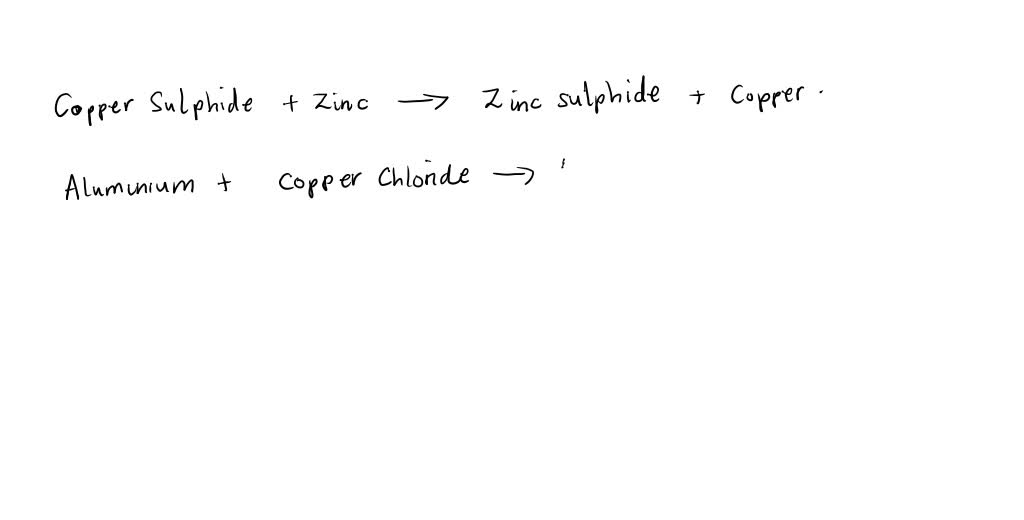 Copper Sulphide + Zinc → Zinc sulphide + Copper.
Aluminium + Copper Chloride →